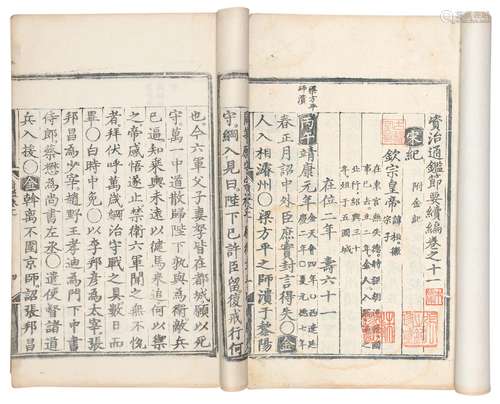 資治通鑑節要續編卷之十一
宋紀 附金紀
欽宗皇帝 諱桓徽宗子
在位二年 壽六十一
丙午靖康元年 金天會四年○西遼延慶二年○夏元德七年
梁方平師潰
春正月詔中外臣庶實封言得失○金
人入相濬州○梁方平之師潰于黎陽
守綱入見曰陛下已許臣留復戒行何
也今六軍父子妻孥皆在都城願以死
守萬一中道散歸陛下孰與為衛敵兵
已逼知乘輿未遠以健馬追何以禦
之帝感悟遂止禁衛六軍聞之無不悅
者拜伏呼萬歲綱治守戰之具數日而
畢○白時中免○以李邦彥為太宰張
邦昌為少宰趙野王孝迪為門下中書
侍郎蔡懋為尚書左丞○遣使督諸道
兵入援○金斡離不圍京師詔張邦昌